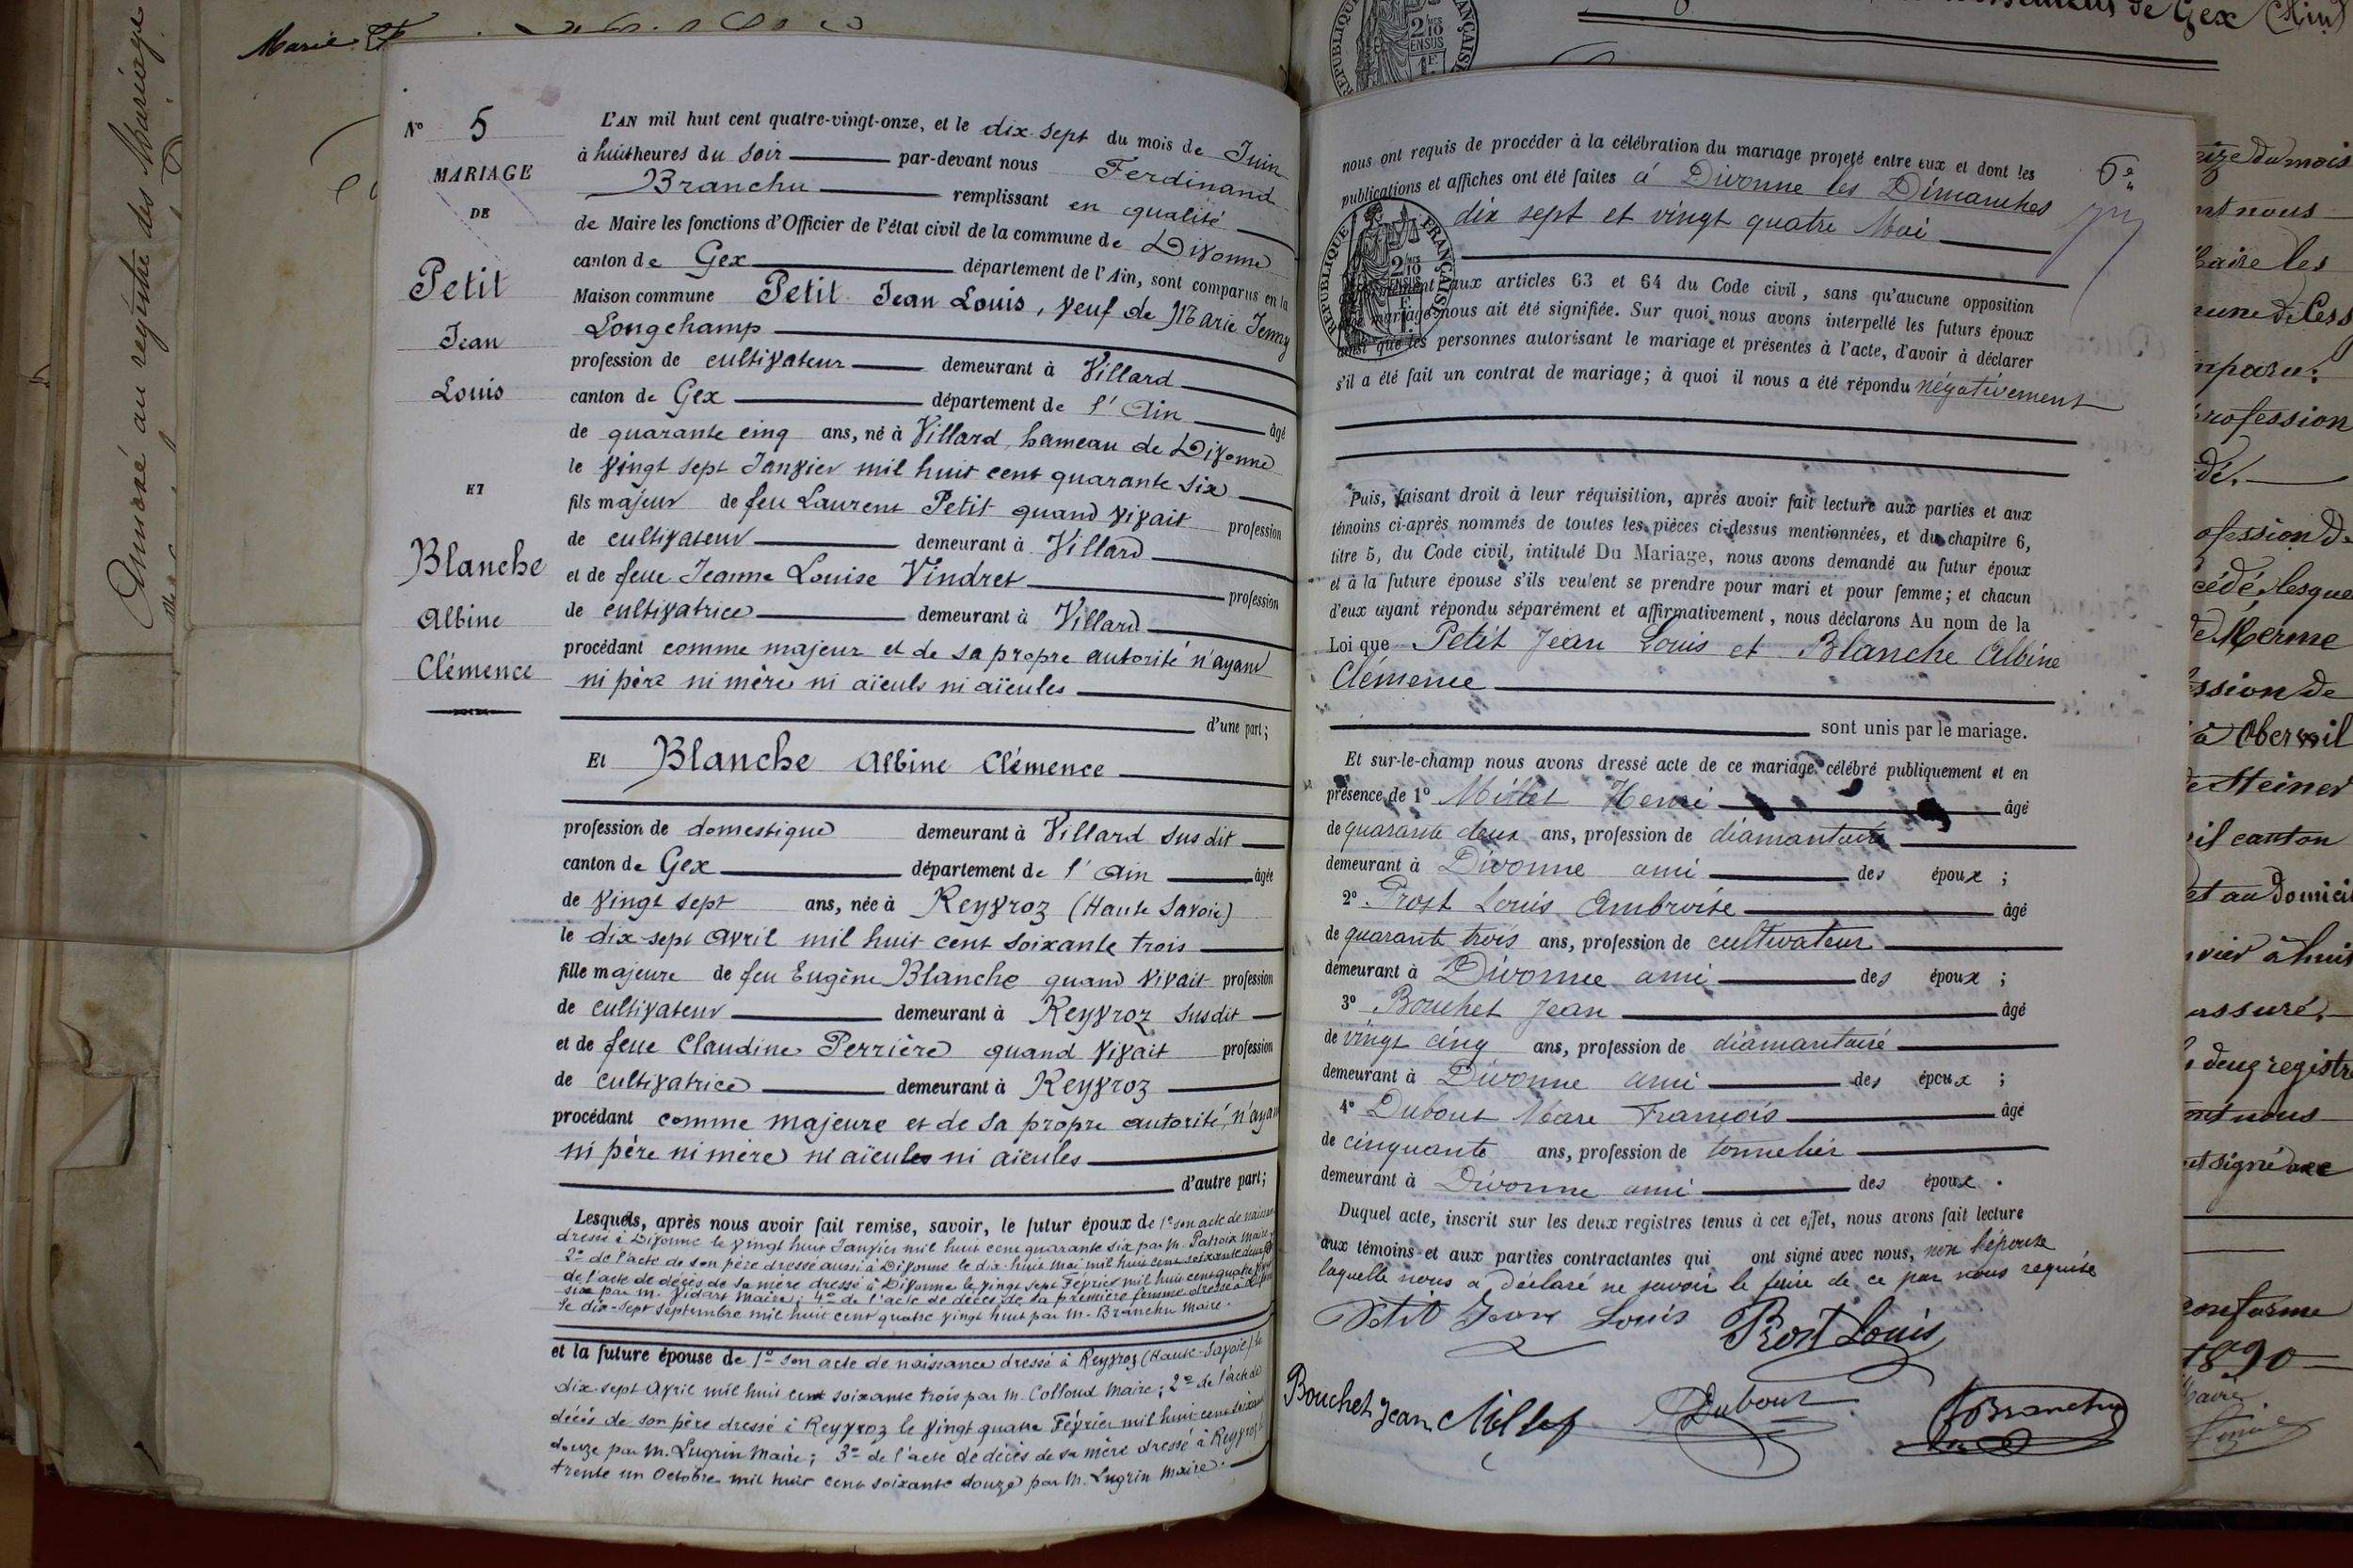 Annexé au registre des Mariages
Marie
N° 5
MARIAGE
DE
Petit
Jean
Louis
ET
Blanche
Albine
Clémence
L'AN mil huit cent quatre-vingt-onze, et le dix-sept du mois de Juin
à huit heures du soir par-devant nous Ferdinand
Branchu remplissant en qualité
de Maire les fonctions d'Officier de l'état civil de la commune de Divonne
canton de Gex département de l'Ain, sont comparus en la
Maison commune Petit Jean Louis, veuf de Marie Jenny
Longchamp
profession de cultivateur demeurant à Villard
canton de Gex département de l'Ain âgé
de quarante cinq ans, né à Villard, hameau de Divonne
le vingt sept Janvier mil huit cent quarante six
fils majeur de feu Laurent Petit quand vivait profession
de cultivateur demeurant à Villard
et de feue Jeanne Louise Vindret profession
de cultivatrice demeurant à Villard
procédant comme majeur et de sa propre autorité n'ayant
ni père ni mère ni aïeuls ni aïeules
d'une part;
Et Blanche Albine Clémence
profession de domestique demeurant à Villard susdit
canton de Gex département de l'Ain âgée
de vingt sept ans, née à Reyvroz (Haute Savoie)
le dix-sept Avril mil huit cent soixante trois
fille majeure de feu Eugène Blanche quand vivait profession
de cultivateur demeurant à Reyvroz susdit
et de feue Claudine Perrière quand vivait profession
de cultivatrice demeurant à Reyvroz
procédant comme majeure et de sa propre autorité, n'ayant
ni père ni mère ni aïeules ni aïeules
d'autre part;
Lesquels, après nous avoir fait remise, savoir, le futur époux de 1° son acte de naissance
dressé à Divonne le vingt huit Janvier mil huit cent quarante six par M. Patroix Maire;
2° de l'acte de son père dressé aussi à Divonne le dix-huit Mai mil huit cent soixante deux;
de l'acte de décès de sa mère dressé à Divonne le vingt sept Février mil huit cent quatre vingt
six par M. Vidart Maire; 4° de l'acte de décès de sa première femme dressé à Divonne
le dix-sept septembre mil huit cent quatre vingt huit par M. Branchu Maire.
et la future épouse de 1° son acte de naissance dressé à Reyvroz (Haute-Savoie) le
dix-sept Avril mil huit cent soixante trois par M. Colloud Maire; 2° de l'acte de
décès de son père dressé à Reyvroz le vingt quatre Février mil huit cent soixante
douze par M. Lugrin Maire; 3° de l'acte de décès de sa mère dressé à Reyvroz le
trente un Octobre mil huit cent soixante douze par M. Lugrin Maire.
nous ont requis de procéder à la célébration du mariage projeté entre eux et dont les
publications et affiches ont été faites à Divonne les Dimanches
dix sept et vingt quatre Mai
REPUBLIQUE FRANÇAISE
aux articles 63 et 64 du Code civil, sans qu'aucune opposition
mariage nous ait été signifiée. Sur quoi nous avons interpellé les futurs époux
ainsi que les personnes autorisant le mariage et présentes à l'acte, d'avoir à déclarer
s'il a été fait un contrat de mariage; à quoi il nous a été répondu négativement
Puis, faisant droit à leur réquisition, après avoir fait lecture aux parties et aux
témoins ci-après nommés de toutes les pièces ci-dessus mentionnées, et du chapitre 6,
titre 5, du Code civil, intitulé Du Mariage, nous avons demandé au futur époux
et à la future épouse s'ils veulent se prendre pour mari et pour femme; et chacun
d'eux ayant répondu séparément et affirmativement, nous déclarons Au nom de la
Loi que Petit Jean Louis et Blanche Albine
Clémence
sont unis par le mariage.
Et sur-le-champ nous avons dressé acte de ce mariage célébré publiquement et en
présence de 1° Millet Henri âgé
de quarante deux ans, profession de diamantaire
demeurant à Divonne ami des époux ;
2° Prost Louis Ambroise âgé
de quarante trois ans, profession de cultivateur
demeurant à Divonne ami des époux ;
3° Bouchet Jean âgé
de vingt cinq ans, profession de diamantaire
demeurant à Divonne ami des époux ;
4° Dubout Marc François âgé
de cinquante ans, profession de tonnelier
demeurant à Divonne ami des époux .
Duquel acte, inscrit sur les deux registres tenus à cet effet, nous avons fait lecture
aux témoins et aux parties contractantes qui ont signé avec nous, non l'épouse
laquelle nous a déclaré ne savoir le faire de ce par nous requise
Petit Jean Louis Prost Louis
Bouchet Jean Millet Dubout FBranchu
de Gex (Ain)
du mois
nous
Maire les
profession
lesque
Oberwil
de Steiner
canton
et au domicil
à huit
assuré.
registre
nous
et signé
conforme
1890